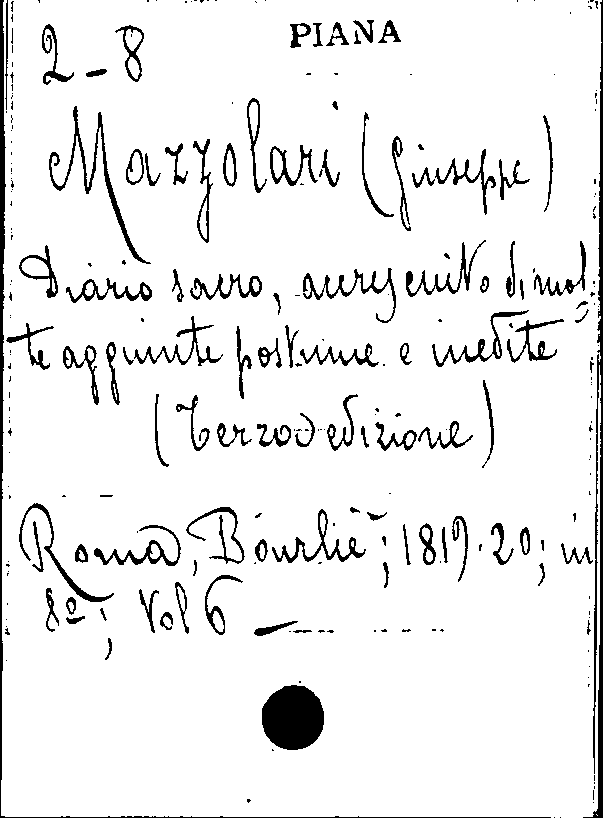 PIANA
2-8
Mazzolari (Giuseppe)
Diario sacro, accresciuto di mol
te aggiunte postume e inedite
(Terza edizione)
Roma, Bourlié; 1819-20; in
8º; Vol 6 —